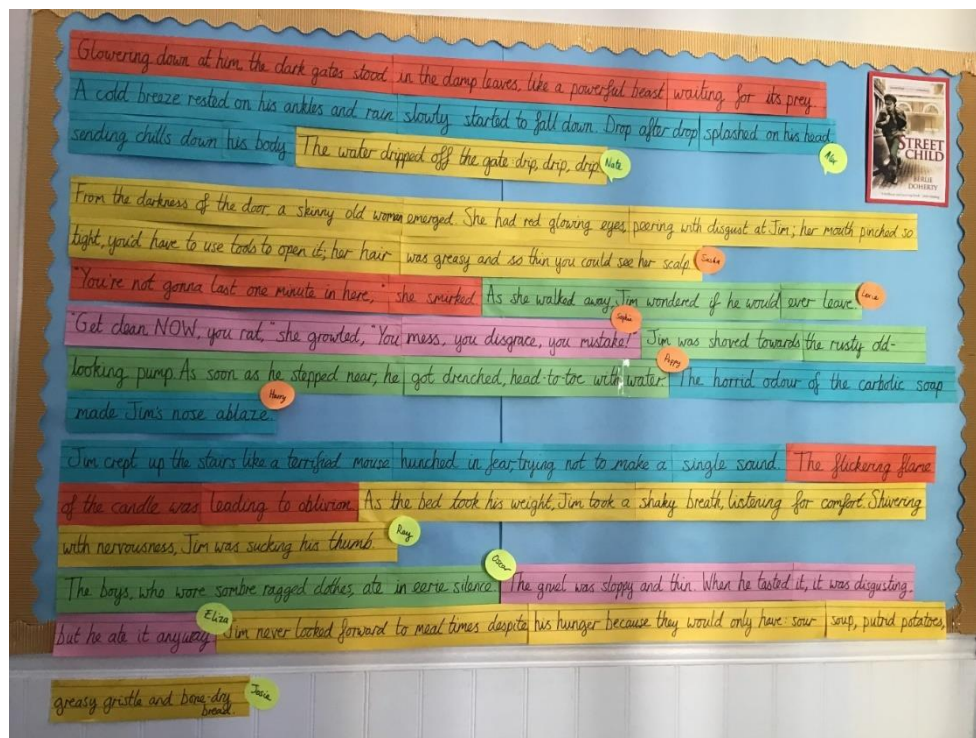 Glowering down at him the dark gates stood in the damp leaves, like a powerful beast waiting for its prey.
A cold breeze rested on his ankles and rain slowly started to fall down. Drop after drop splashed on his head
Alex
sending chills down his body. The water dripped off the gate drip, drip, drip.
Nate
STREET
CHILD
BERLIE
DOHERTY
From the darkness of the door, a skinny old woman emerged. She had red glowing eyes, peering with disgust at Jim; her mouth pinched so
tight, you'd have to use tools to open it; her hair was greasy and so thin you could see her scalp.
Sasha
"You're not gonna last one minute in here," she smirked. As she walked away, Jim wondered if he would ever leave.
"Get clean NOW, you rat," she growled, "You mess, you disgrace, you mistake!" Jim was shoved towards the rusty old-
Sophie
looking pump. As soon as he stepped near, he got drenched, head-to-toe with water. The horrid odour of the carbolic soap
Poppy
made Jim's nose ablaze.
Harry
Jim crept up the stairs like a terrified mouse hunched in fear, trying not to make a single sound. The flickering flame
of the candle was leading to oblivion. As the bed took his weight, Jim took a shaky breath, listening for comfort. Shivering
with nervousness, Jim was sucking his thumb.
Ray
The boys, who wore sombre ragged clothes, ate in eerie silence. The gruel was sloppy and thin. When he tasted it, it was disgusting,
Oscar
but he ate it anyway. Jim never looked forward to meal times despite his hunger because they would only have: sour soup, putrid potatoes,
Eliza
greasy gristle and bone-dry
bread.
Josie